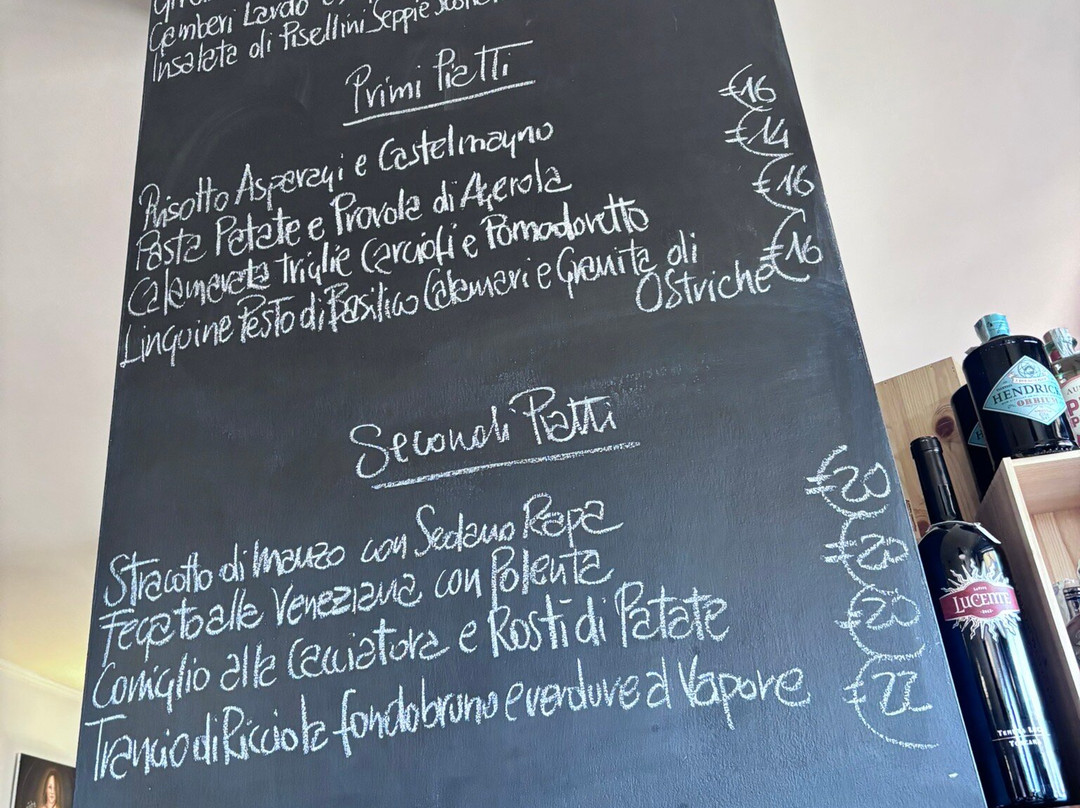 Gamberi Lardo
Insalata di Pisellini Seppie
Primi Piatti
Risotto Asparagi e Castelmagno €16
Pasta Patate e Provola di Agerola €14
Calamarata Triglie Carciofi e Pomodoretto €16
Linguine Pesto di Basilico Calamari e Granita di Ostriche €16
Secondi Piatti
Stracotto di Manzo con Sedano Rapa €20
Fegato alla Veneziana con Polenta €20
Coniglio alla Cacciatora e Rosti di Patate €20
Trancio di Ricciola fondobruno e verdure al Vapore €22
HENDRICK
ORBIUM
LUCENTE